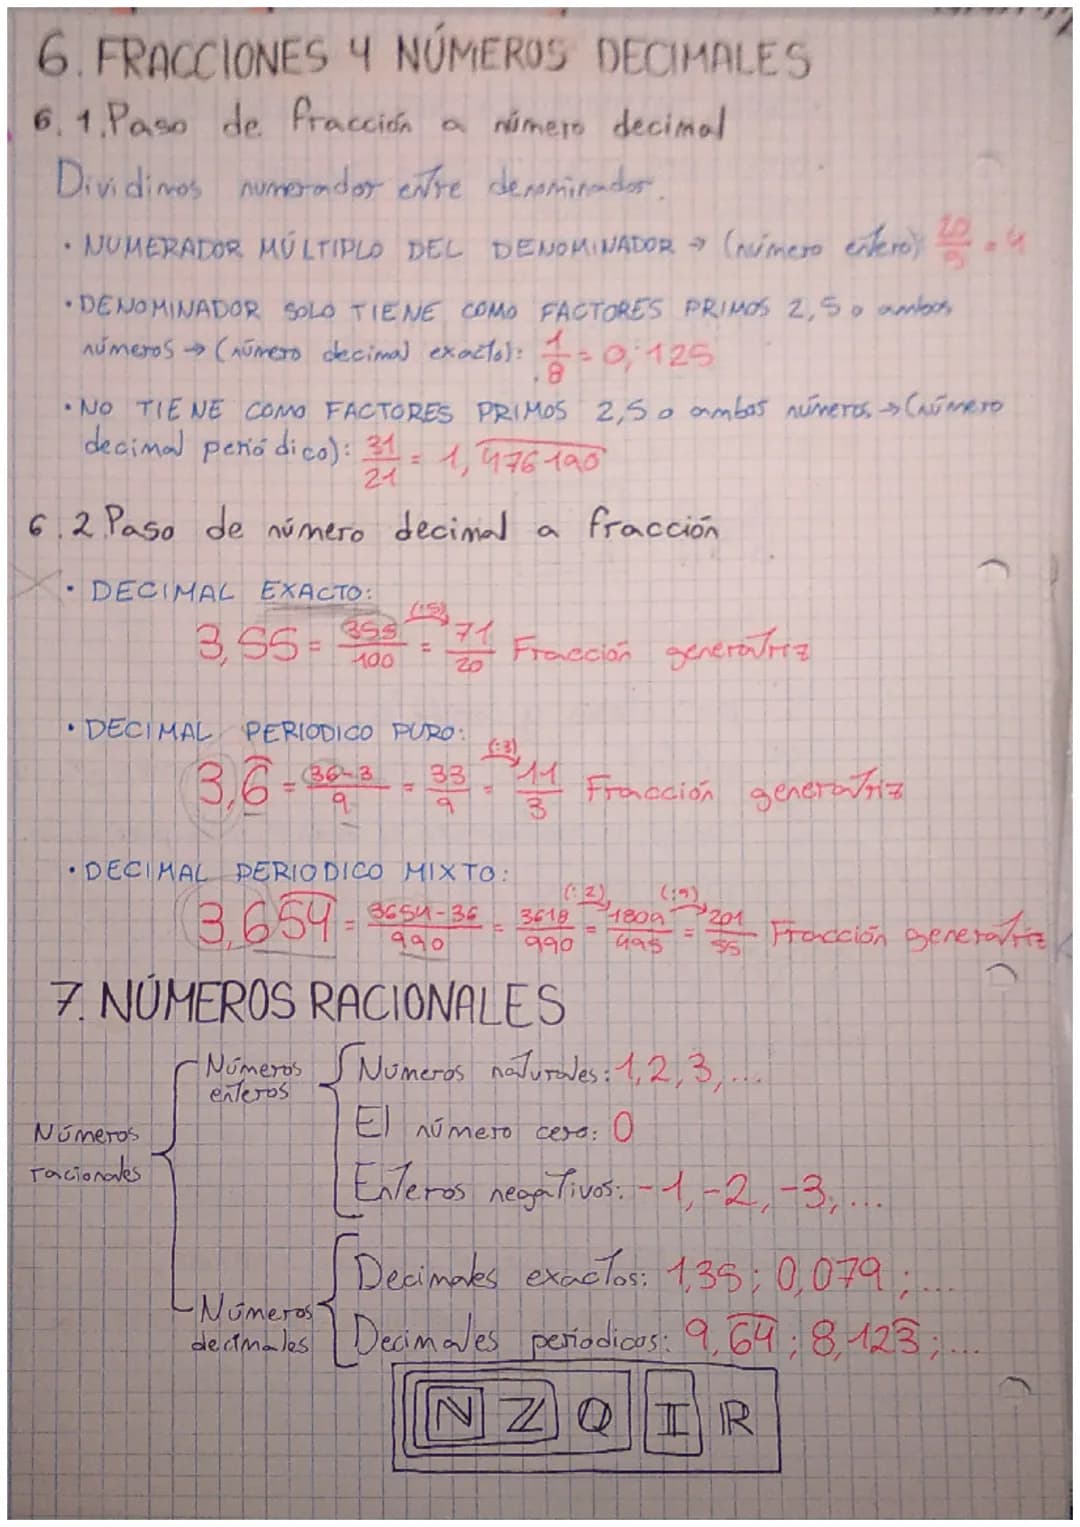 6. FRACCIONES Y NÚMEROS DECIMALES
6.1. Paso de fracción a número decimal
Dividimos numerador entre denominador.
• NUMERADOR MÚLTIPLO DEL DENOMINADOR → (número entero): 20/5 = 4
• DENOMINADOR SOLO TIENE COMO FACTORES PRIMOS 2,5 o ambos
números → (número decimal exacto): 1/8 = 0,125
• NO TIENE COMO FACTORES PRIMOS 2,5 o ambos números → (número
decimal periódico): 31/21 = 1,476190
6.2 Paso de número decimal a fracción
• DECIMAL EXACTO:
3,55 = 355/100 = (:5) 71/20 Fracción generatriz
• DECIMAL PERIODICO PURO:
3,6 = 36-3/9 = 33/9 = (:3) 11/3 Fracción generatriz
• DECIMAL PERIODICO MIXTO:
3,654 = 3654-36/990 = 3618/990 = (:2) 1809/495 = (:9) 201/55 Fracción generatriz
7. NÚMEROS RACIONALES
Números racionales
Números enteros
Números naturales: 1, 2, 3, ...
El número cero: 0
Enteros negativos: -1, -2, -3, ...
Números decimales
Decimales exactos: 1,35; 0,079; ...
Decimales periodicos: 9,64; 8,123; ...
N Z Q I R